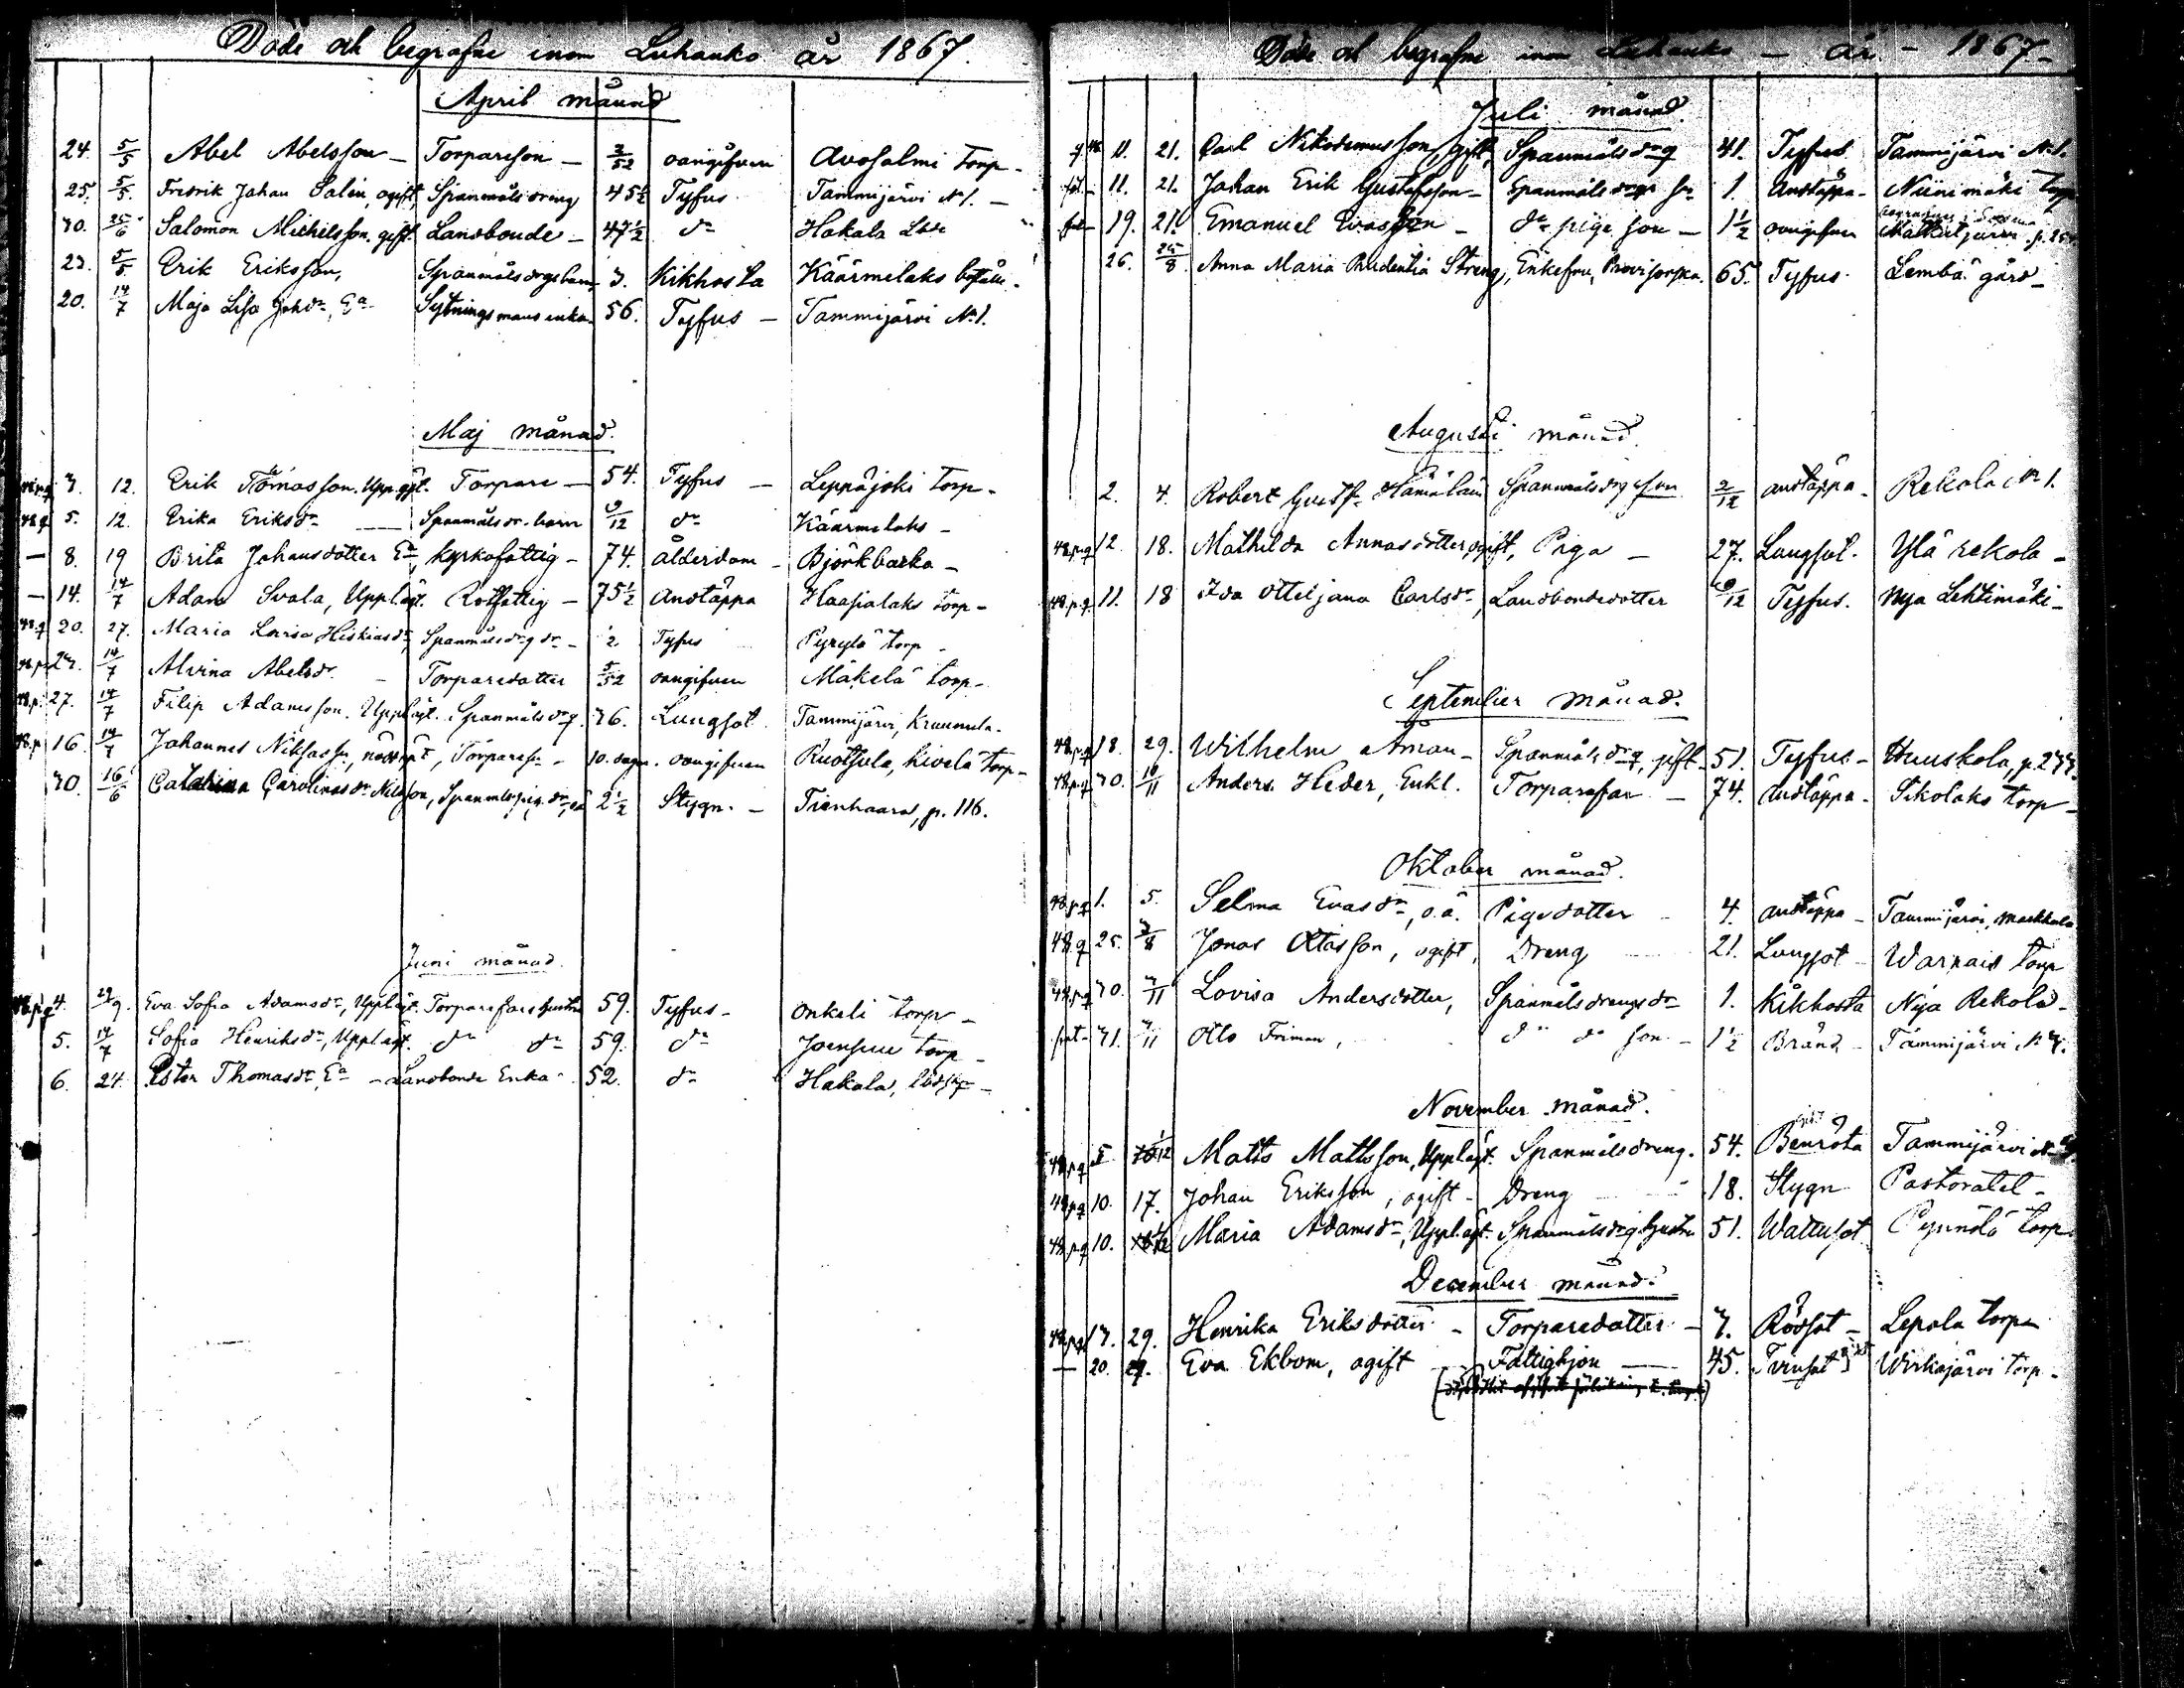 Döde och begrafne inom Luhanko år 1867.
April månad
24. 5/5 Abel Abelsson - Torpareson - 3/52 oangifven Avosalmi torp -
25. 5/5. Fredrik Johan Salin, ogift Spanmåls dreng 45½ Tyfus Tammijärvi N 1. -
30. 25/6 Salomon Michelsson, gift Landbonde - 47½ do Hakala
23. 5/5 Erik Eriksson, Spanmåls drgs barn 3. Kikhosta Käärmelaks
20. 14/7 Maja Lisa Johdr, Ea Sytningsmans enka 56. Tyfus - Tammijärvi N 1.
Maj månad.
3. 12. Erik Tomasson. Upp.gift. Torpare - 54. Tyfus - Leppäjoki torp -
5. 12. Erika Eriksdr - Spanmåls dr. barn 9/12 do Käärmelaks -
- 8. 19 Brita Johansdotter Ea, kyrkofattig - 74. ålderdom - Björkbacka -
- 14. 14/7 Adam Svala, Upplöst. Rotfattig - 75½ Andtäppa Haapalaks torp -
20. 27. Maria Lovisa Hiskiasdr, Spanmålsdrg dr - 2 Tyfus Pyrylä torp -
14/7 Alvina Abelsdr. - Torparedotter 5/52 oangifven Mäkelä torp -
27. 14/7 Filip Adamsson. Spanmåls drg. 36. Lungsot Tammijärvi,
16. 14/7 Johannes Niklasson, nöddöpt, Torpareson - 10. dagar. oangifven Ruottula, Kivelä torp -
30 16/6 Catharina Carolinasdr 2½ Stygn. - Tienhaara, p. 116.
Juni månad
4. Eva Sofia Adamsdr, Torparefars hustru 59. Tyfus - Onkali torp -
5. 14/7 Sofia Henriksdr, do do 59. do Joensuu torp -
6. 24. Ester Thomasdr, Ea - Landbonde Enka 52. do Hakala,
Döde och begrafne inom Luhanko - år - 1867 -
Juli månad.
11. 21. Carl Nikodemusson, gift, Spanmåls drg 41. Tyfus Tammijärvi N 1.
11. 21. Johan Erik Gustafsson - Spanmåls drgs son 1. Andtäppa - Niinimäki torp
19. 21. Emanuel Evasson - do pige son - 1½ oangifven
26. 25/8. Anna Maria Prudentia Streng, Enkefru, Provisorska. 65. Tyfus Lembä gård -
Augusti månad.
2. 4. Robert Gustf Hämäläin Spanmåls drg son 2/12 andtäppa - Rekola N 1.
12. 18. Mathilda Annasdotter, ogift, Piga - 27. Lungsot. Ylä rekola -
11. 18 Ida Ottiljana Carlsdr. Landbondedotter 9/12 Tyfus. Nya Lehtimäki -
September månad.
18. 29. Wilhelm Åman - Spanmåls drg, gift 51. Tyfus - Huuskola, p. 233.
30. 10/11 Anders Heder, Enkl. Torparefar - 74. Andtäppa - Sikolaks torp -
Oktober månad.
1. 5. Selma Evasdr, o.ä. Pigedotter 4. andtäppa - Tammijärvi, Markkula
25. 3/8 Jonas Ottosson, ogift, Dreng 21. Lungsot - Warpais torp
30. 3/11 Lovisa Andersdotter, Spanmåls drengs dr 1. Kikhosta Nya Rekola -
31. 3/11 Otto Friman, do do son - 1½ Brand - Tammijärvi N 3.
November månad.
5 1/12 Matts Mattsson, Spanmåls dreng. 54. Benröta Tammijärvi
10. 17. Johan Eriksson, ogift - Dreng 18. Stygn Pastoratet -
10. 1/12 Maria Adamsdr, Spanmåls drg hustru 51. Wattusot torp
December månad.
13. 29. Henrika Eriksdotter - Torparedotter - 3. Rödsot - Lepola torp
- 20. 29. Eva Ekbom, ogift Fattighjon 45. Tvinsot Wirkajärvi torp -